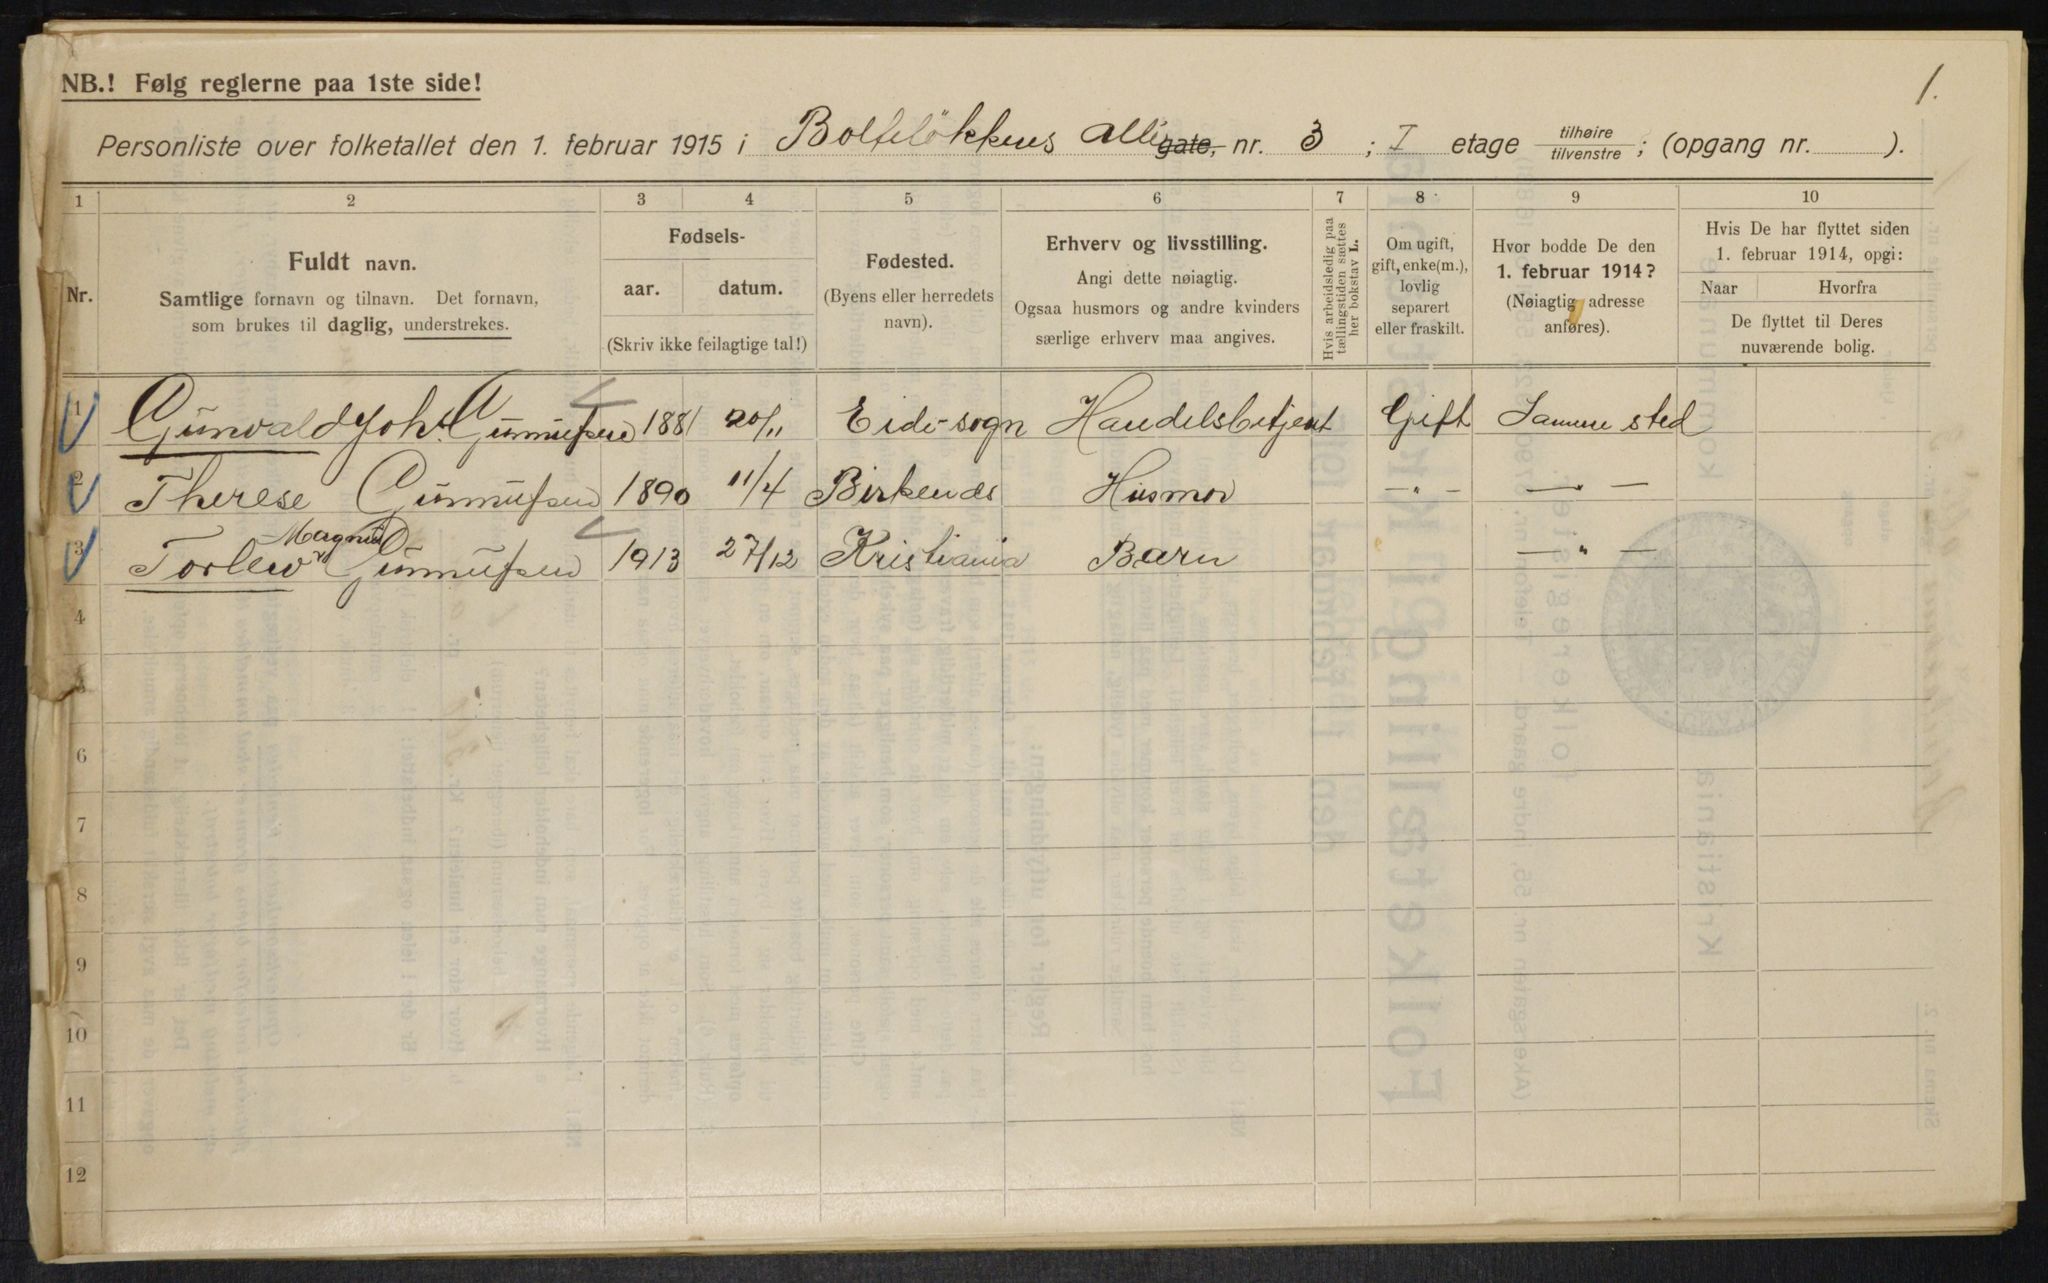 1.
NB.! Følg reglerne paa 1ste side!
Personliste over folketallet den 1. februar 1915 i Bolteløkkens Allé gate, nr. 3 ; I etage tilhøire tilvenstre ; (opgang nr. ).
1 2 3 4 5 6 7 8 9 10
Nr.
Fuldt navn.
Samtlige fornavn og tilnavn. Det fornavn,
som brukes til daglig, understrekes.
Fødsels-
aar. datum.
(Skriv ikke feilagtige tal!)
Fødested.
(Byens eller herredets
navn).
Erhverv og livsstilling.
Angi dette nøiagtig.
Ogsaa husmors og andre kvinders
særlige erhverv maa angives.
Hvis arbeidsledig paa
tællingstiden sættes
her bokstav L.
Om ugift,
gift, enke(m.),
lovlig
separert
eller fraskilt.
Hvor bodde De den
1. februar 1914?
(Nøiagtig adresse
anføres).
Hvis De har flyttet siden
1. februar 1914, opgi:
Naar Hvorfra
De flyttet til Deres
nuværende bolig.
1 Gunvald Joh. Gunnufsen 1881 20/11 Eide sogn Handelsbetjent Gift Samme sted
2 Therese Gunnufsen 1890 11/4 Birkenes Husmor – " – – " –
Magnus
3 Torlew Gunnufsen 1913 27/12 Kristiania Barn – " –
4
5
6
7
8
9
10
11
12